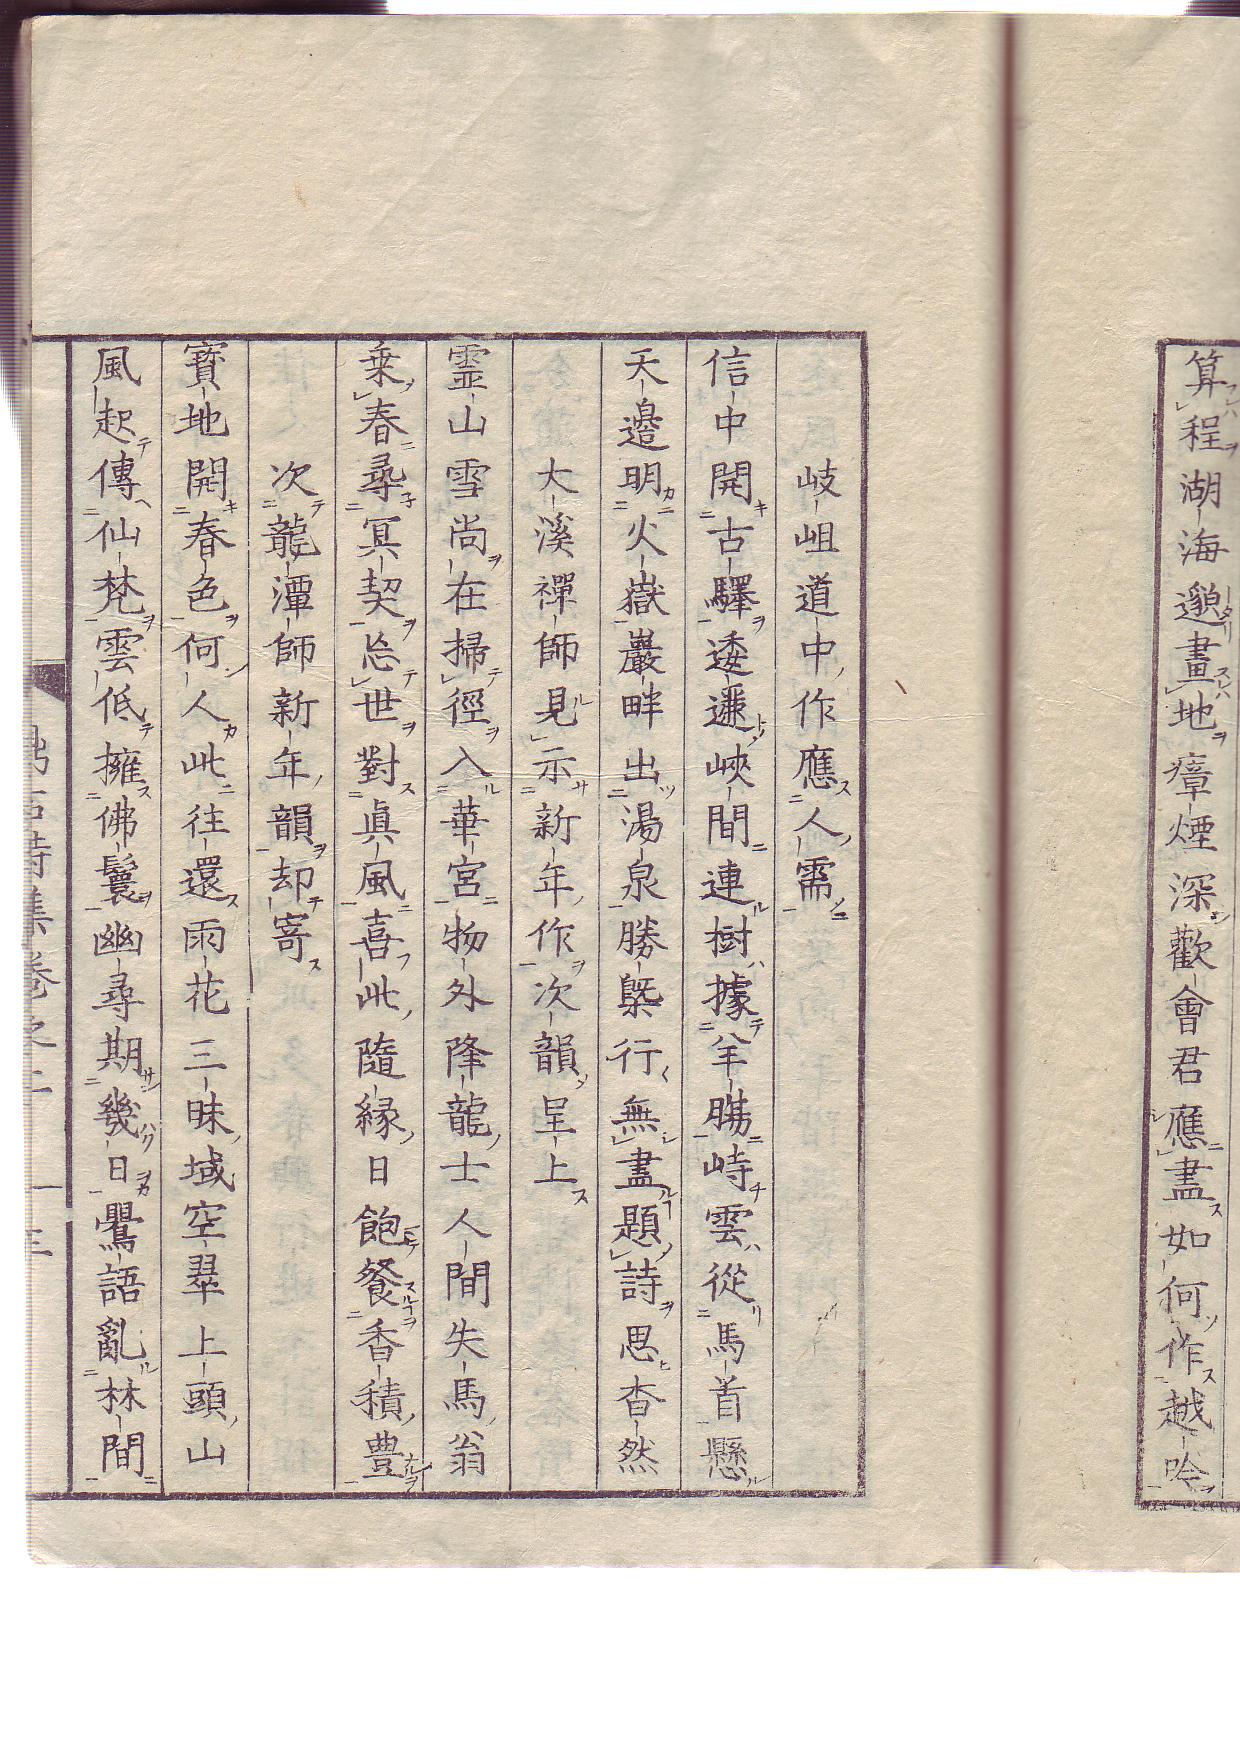 算程湖海邈畫地瘴煙深歡會君應盡如何作越吟
岐岨道中作應人需
信中開古驛逶邐峽間連樹據羊腸峙雲從馬首懸
天邊明火嶽巖畔出湯泉勝槩行無盡題詩思杳然
大溪禪師見示新年作次韻呈上
霊山雪尚在掃徑入華宮物外降龍士人間失馬翁
乗春尋冥契忘世對眞風喜此隨緣日飽餐香積豊
次龍潭師新年韻却寄
寶地開春色何人此往還雨花三昧域空翠上頭山
風起傳仙梵雲低擁佛鬟幽尋期幾日鸎語亂林間
詩集卷之二 十三